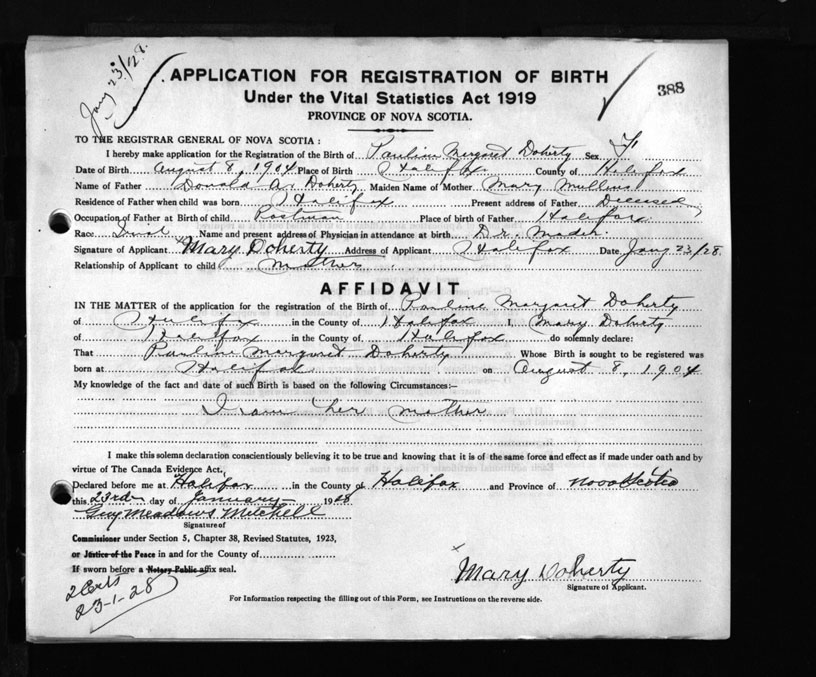 Jany 23/28.
APPLICATION FOR REGISTRATION OF BIRTH
388
Under the Vital Statistics Act 1919
PROVINCE OF NOVA SCOTIA.
TO THE REGISTRAR GENERAL OF NOVA SCOTIA :
I hereby make application for the Registration of the Birth of Pauline Margaret Doherty Sex F.
Date of Birth August 8, 1904 Place of Birth Halifax County of Halifax
Name of Father Donald A. Doherty Maiden Name of Mother Mary Mullins
Residence of Father when child was born Halifax Present address of Father Deceased
Occupation of Father at Birth of child Postman Place of birth of Father Halifax
Race Irish Name and present address of Physician in attendance at birth Dr. Mader.
Signature of Applicant Mary Doherty Address of Applicant Halifax Date Jany 23/28.
Relationship of Applicant to child Mother
AFFIDAVIT
IN THE MATTER of the application for the registration of the Birth of Pauline Margaret Doherty
of Halifax in the County of Halifax I, Mary Doherty
of Halifax in the County of Halifax do solemnly declare:
That Pauline Margaret Doherty Whose Birth is sought to be registered was
born at Halifax on August 8, 1904
My knowledge of the fact and date of such Birth is based on the following Circumstances:—
I am her mother
I make this solemn declaration conscientiously believing it to be true and knowing that it is of the same force and effect as if made under oath and by
virtue of The Canada Evidence Act.
Declared before me at Halifax in the County of Halifax and Province of Nova Scotia
this 23rd day of January 1928
Guy Meadows Mitchell
Signature of
Commissioner under Section 5, Chapter 38, Revised Statutes, 1923,
or Justice of the Peace in and for the County of
If sworn before a Notary Public affix seal.
x Mary Doherty
Signature of Applicant.
2 Certs
23-1-28
For Information respecting the filling out of this Form, see Instructions on the reverse side.